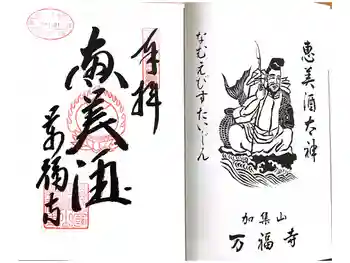 奉拝
恵美酒
万福寺
恵美酒大神
なむえびすだいじん
加集山
万福寺